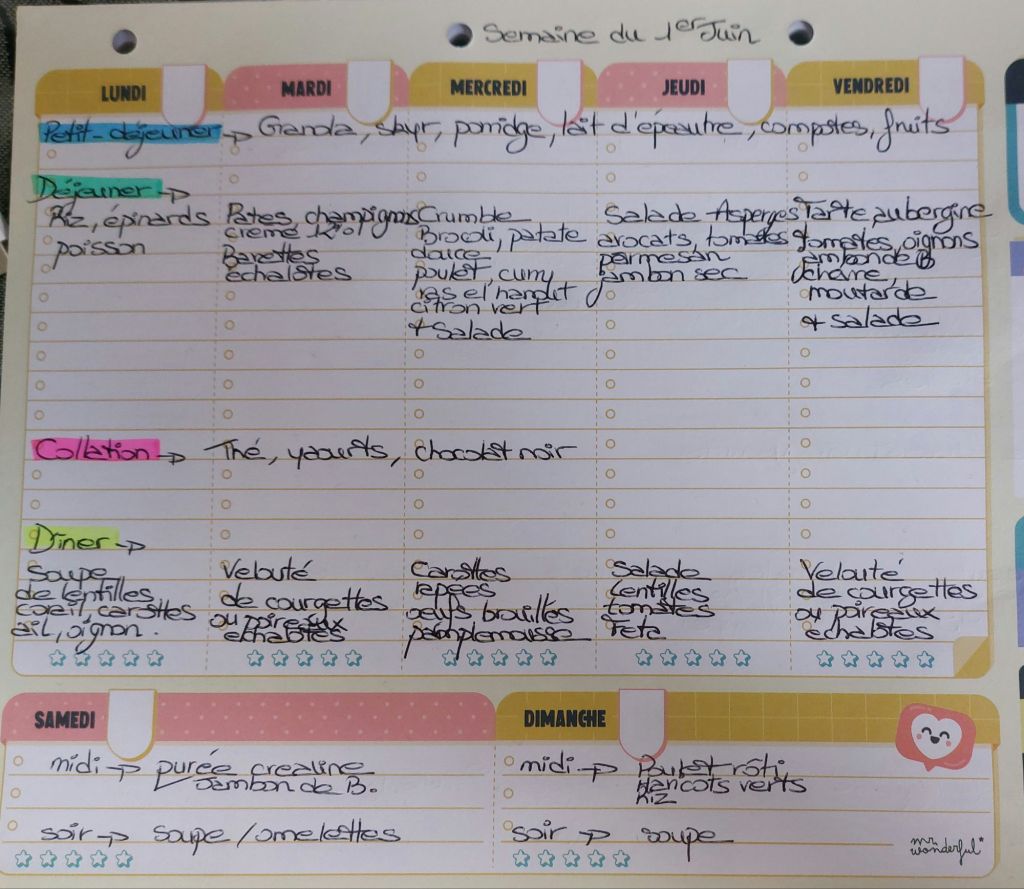 Semaine du 1er Juin
LUNDI
MARDI
MERCREDI
JEUDI
VENDREDI
Petit-déjeuner → Granola, skyr, porridge, lait d'épeautre, compotes, fruits
Déjeuner →
Riz, épinards
poisson
Pates, champignons
creme 12%
Barettes
echalotes
Crumble
Brocoli, patate
douce
poulet, curry
ras el hanout
citron vert
+ Salade
Salade Asperges
avocats, tomates
parmesan
jambon sec
Tarte aubergine
tomates, oignons
jambon de B
chèvre,
moutarde
+ salade
Collation → Thé, yaourts, chocolat noir
Dîner →
Soupe
de lentilles
corail, carottes
ail, oignon.
Velouté
de courgettes
ou poireaux
echalotes
Carottes
repées
oeufs brouillés
pamplemousse
Salade
Lentilles
tomates
Feta
Velouté
de courgettes
ou poireaux
echalotes
SAMEDI
midi → purée crealine
Jambon de B.
soir → soupe / omelettes
DIMANCHE
midi → Poulet rôti
Haricots verts
Riz
soir → soupe
mr.
wonderful*